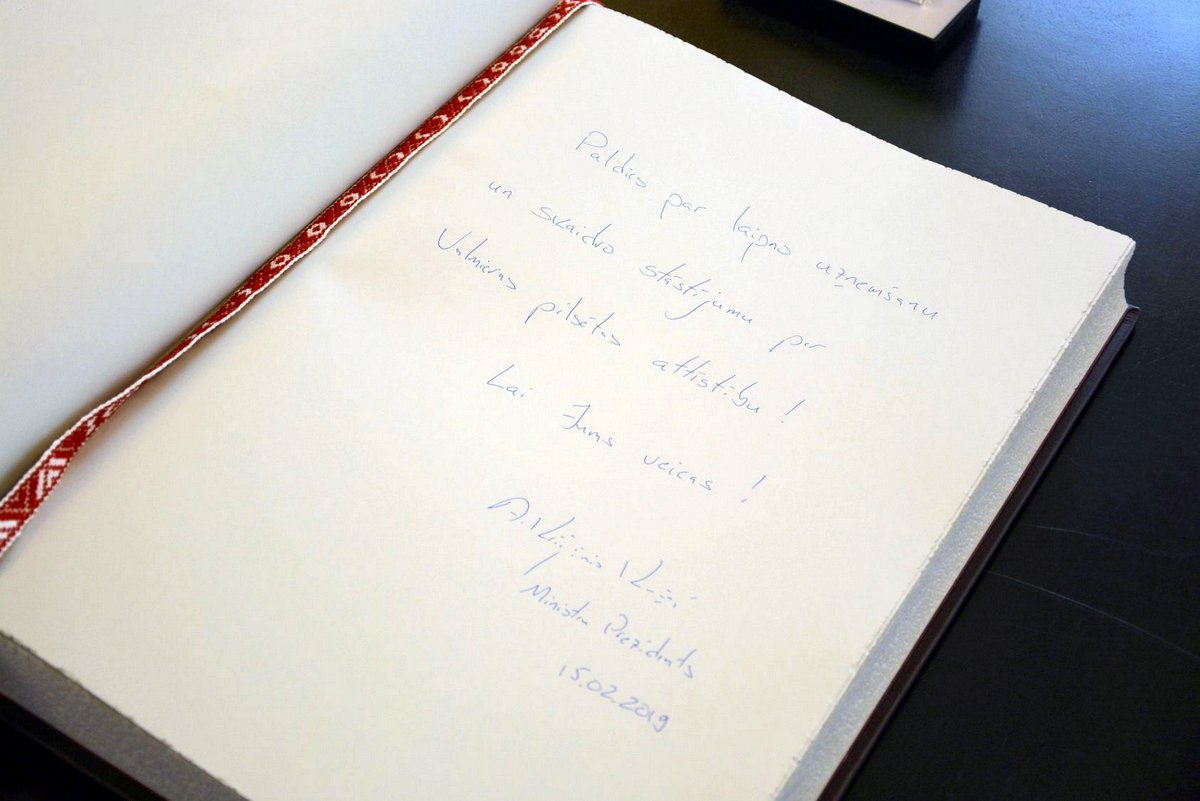 Paldies par laipno uzņemšanu
un skaidro stāstījumu par
Valmieras pilsētas attīstību!
Lai Jums veicas!
A. Krišjānis Kariņš
Ministru Prezidents
15.02.2019